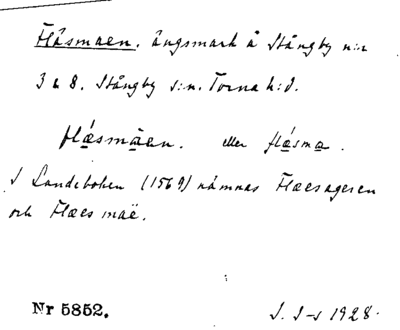 Flåsmaen. ängsmark å Stångby n:r
3 & 8. Stångby s:n. Torna h:d.
flåsmåen. eller flåsma.
I Landeboken (1569) nämnas Flaesageren
och Flaes maë.
Nr 5852.
1928.